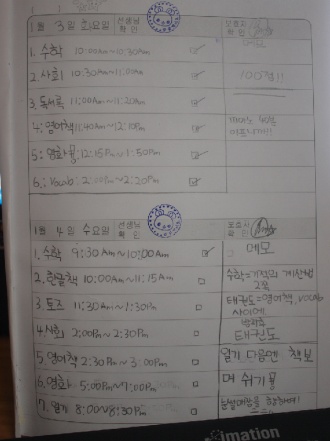 1월 3일 화요일 선생님 확인 보호자 확인
메모
1. 수학 10:00Am~10:30Am
2. 사회 10:30Am~11:00Am
100점!!
3. 독서록 11:00Am~11:20Am
4. 영어책 11:40Am~12:10Pm
5. 영화 12:15Pm~1:50Pm
6. Vocab 2:00Pm~2:20Pm
1월 4일 수요일 선생님 확인 보호자 확인
메모
1. 수학 9:30Am~10:00Am
2. 한글책 10:00Am~11:15Am
수학=기적의 계산법
2장
3. 토즈 11:30Am~1:30Pm
태권도=영어책, vocab
사이에
4. 사회 2:00Pm~2:30Pm
태권도
5. 영어책 2:30Pm~3:00Pm
일기 다음엔 책보
6. 영화 5:00Pm~7:00Pm
며 쉬기
7. 일기 8:00~8:30Pm
imation